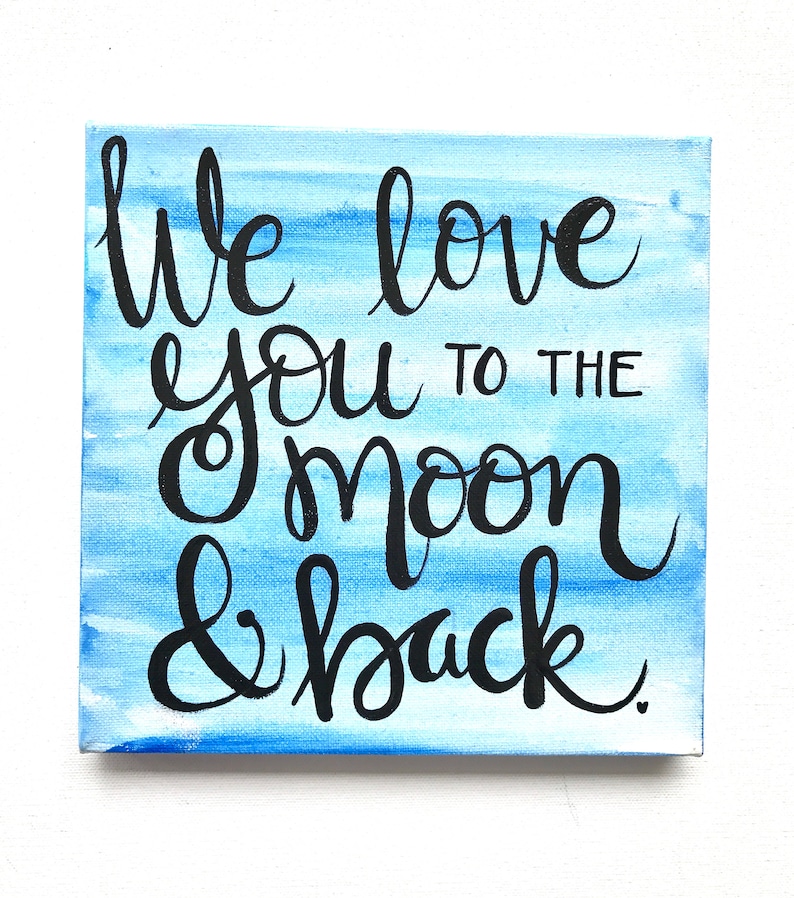 We love
you TO THE
moon
& back.